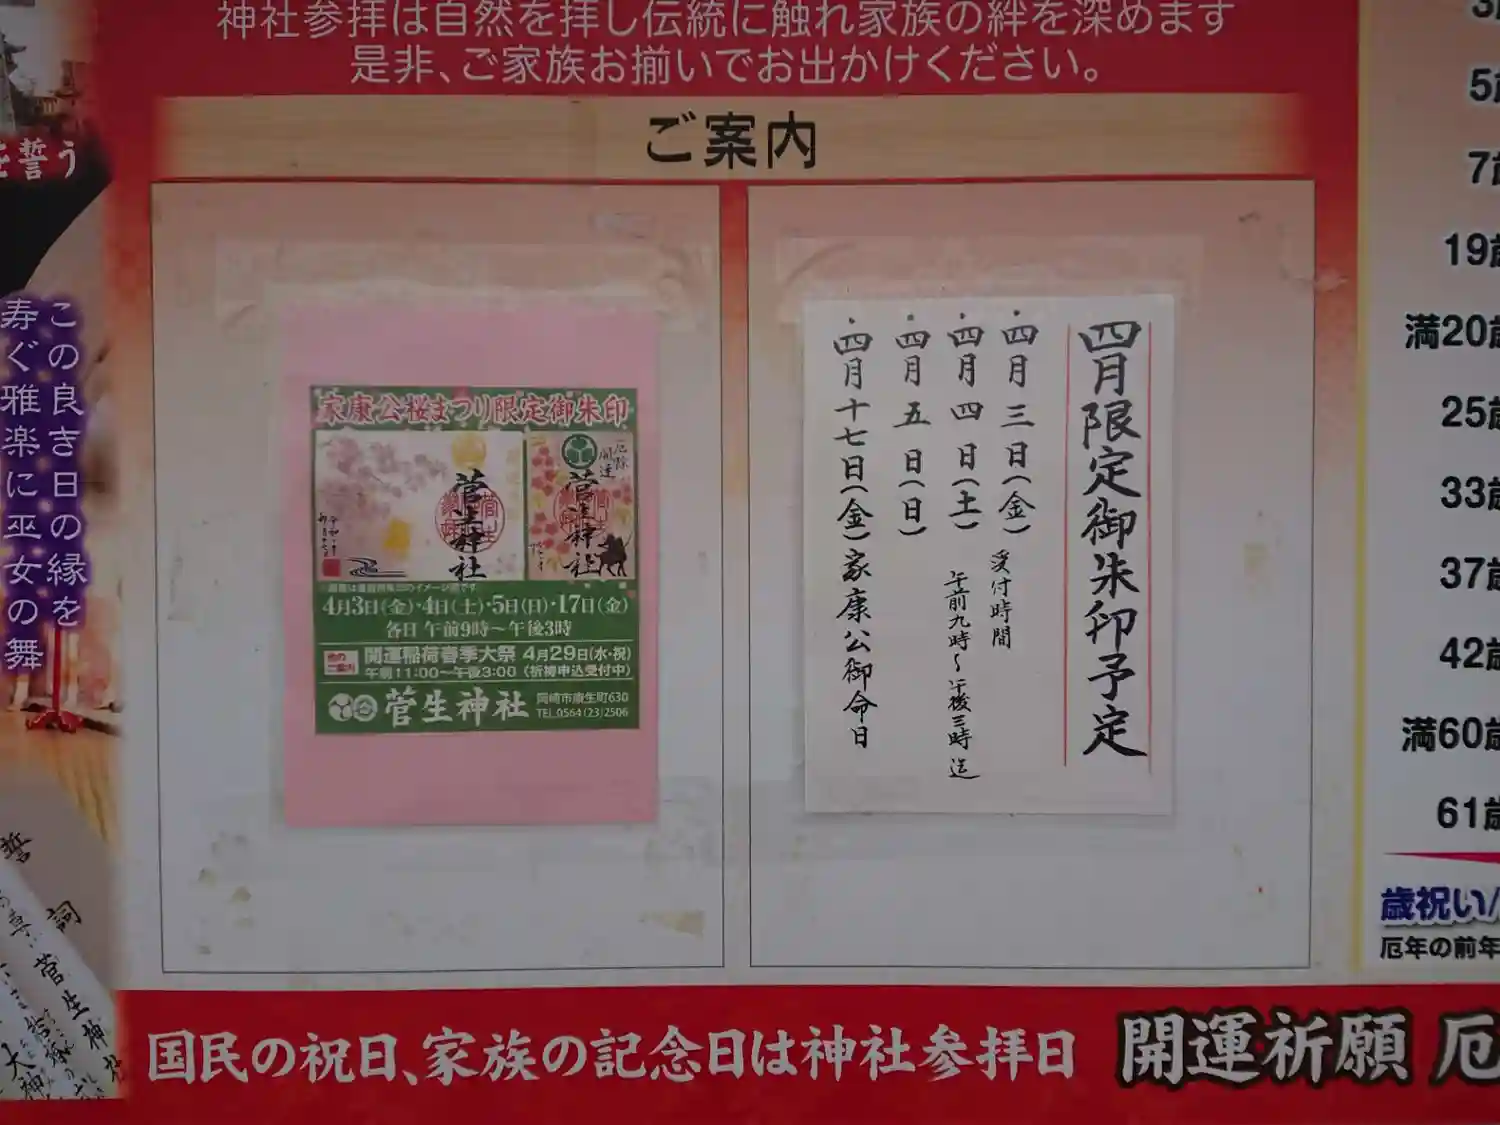 神社参拝は自然を拝し伝統に触れ家族の絆を深めます
是非、ご家族お揃いでお出かけください。
ご案内
を誓う
この良き日の縁を
寿ぐ雅楽に巫女の舞
家康公桜まつり限定御朱印
菅生神社
厄除
開運
菅生神社
4月3日(金)・4日(土)・5日(日)・17日(金)
各日 午前9時〜午後3時
他の
ご案内
開運稲荷春季大祭 4月29日(水・祝)
午前11:00〜午後3:00(祈祷申込受付中)
菅生神社
岡崎市康生町630
TEL.0564(23)2506
四月限定御朱印予定
・四月三日(金)受付時間
・四月四日(土)午前九時〜午後三時迄
・四月五日(日)
・四月十七日(金)家康公御命日
5歳
7歳
19歳
満20歳
25歳
33歳
37歳
42歳
満60歳
61歳
歳祝い/
厄年の前年
誓詞
菅生神社
大神
国民の祝日、家族の記念日は神社参拝日
開運祈願 厄